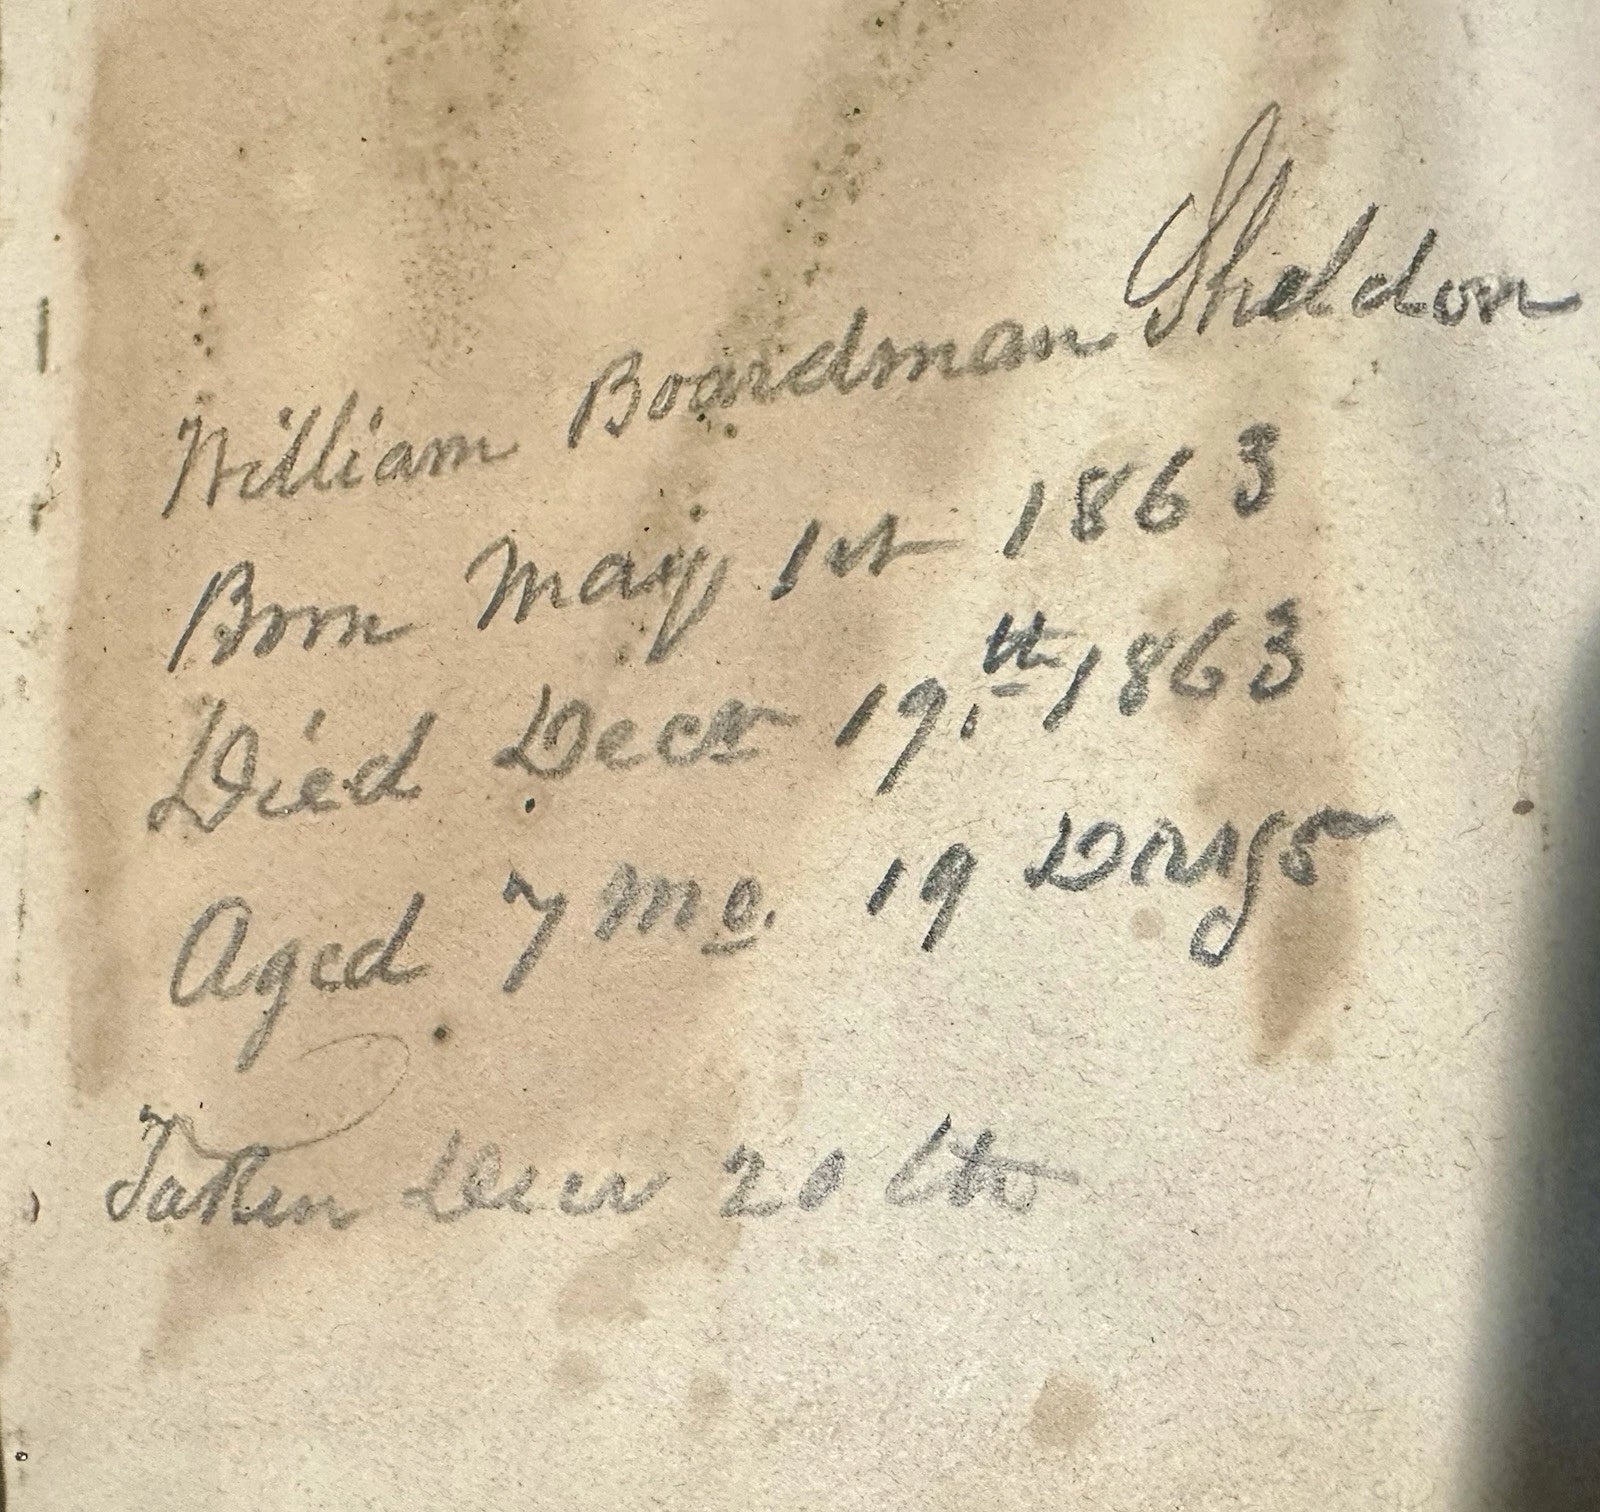 William Boardman Sheldon
Born May 1st 1863
Died Decr 19th 1863
Aged 7 Mo. 19 Days
Taken Decr 20 th